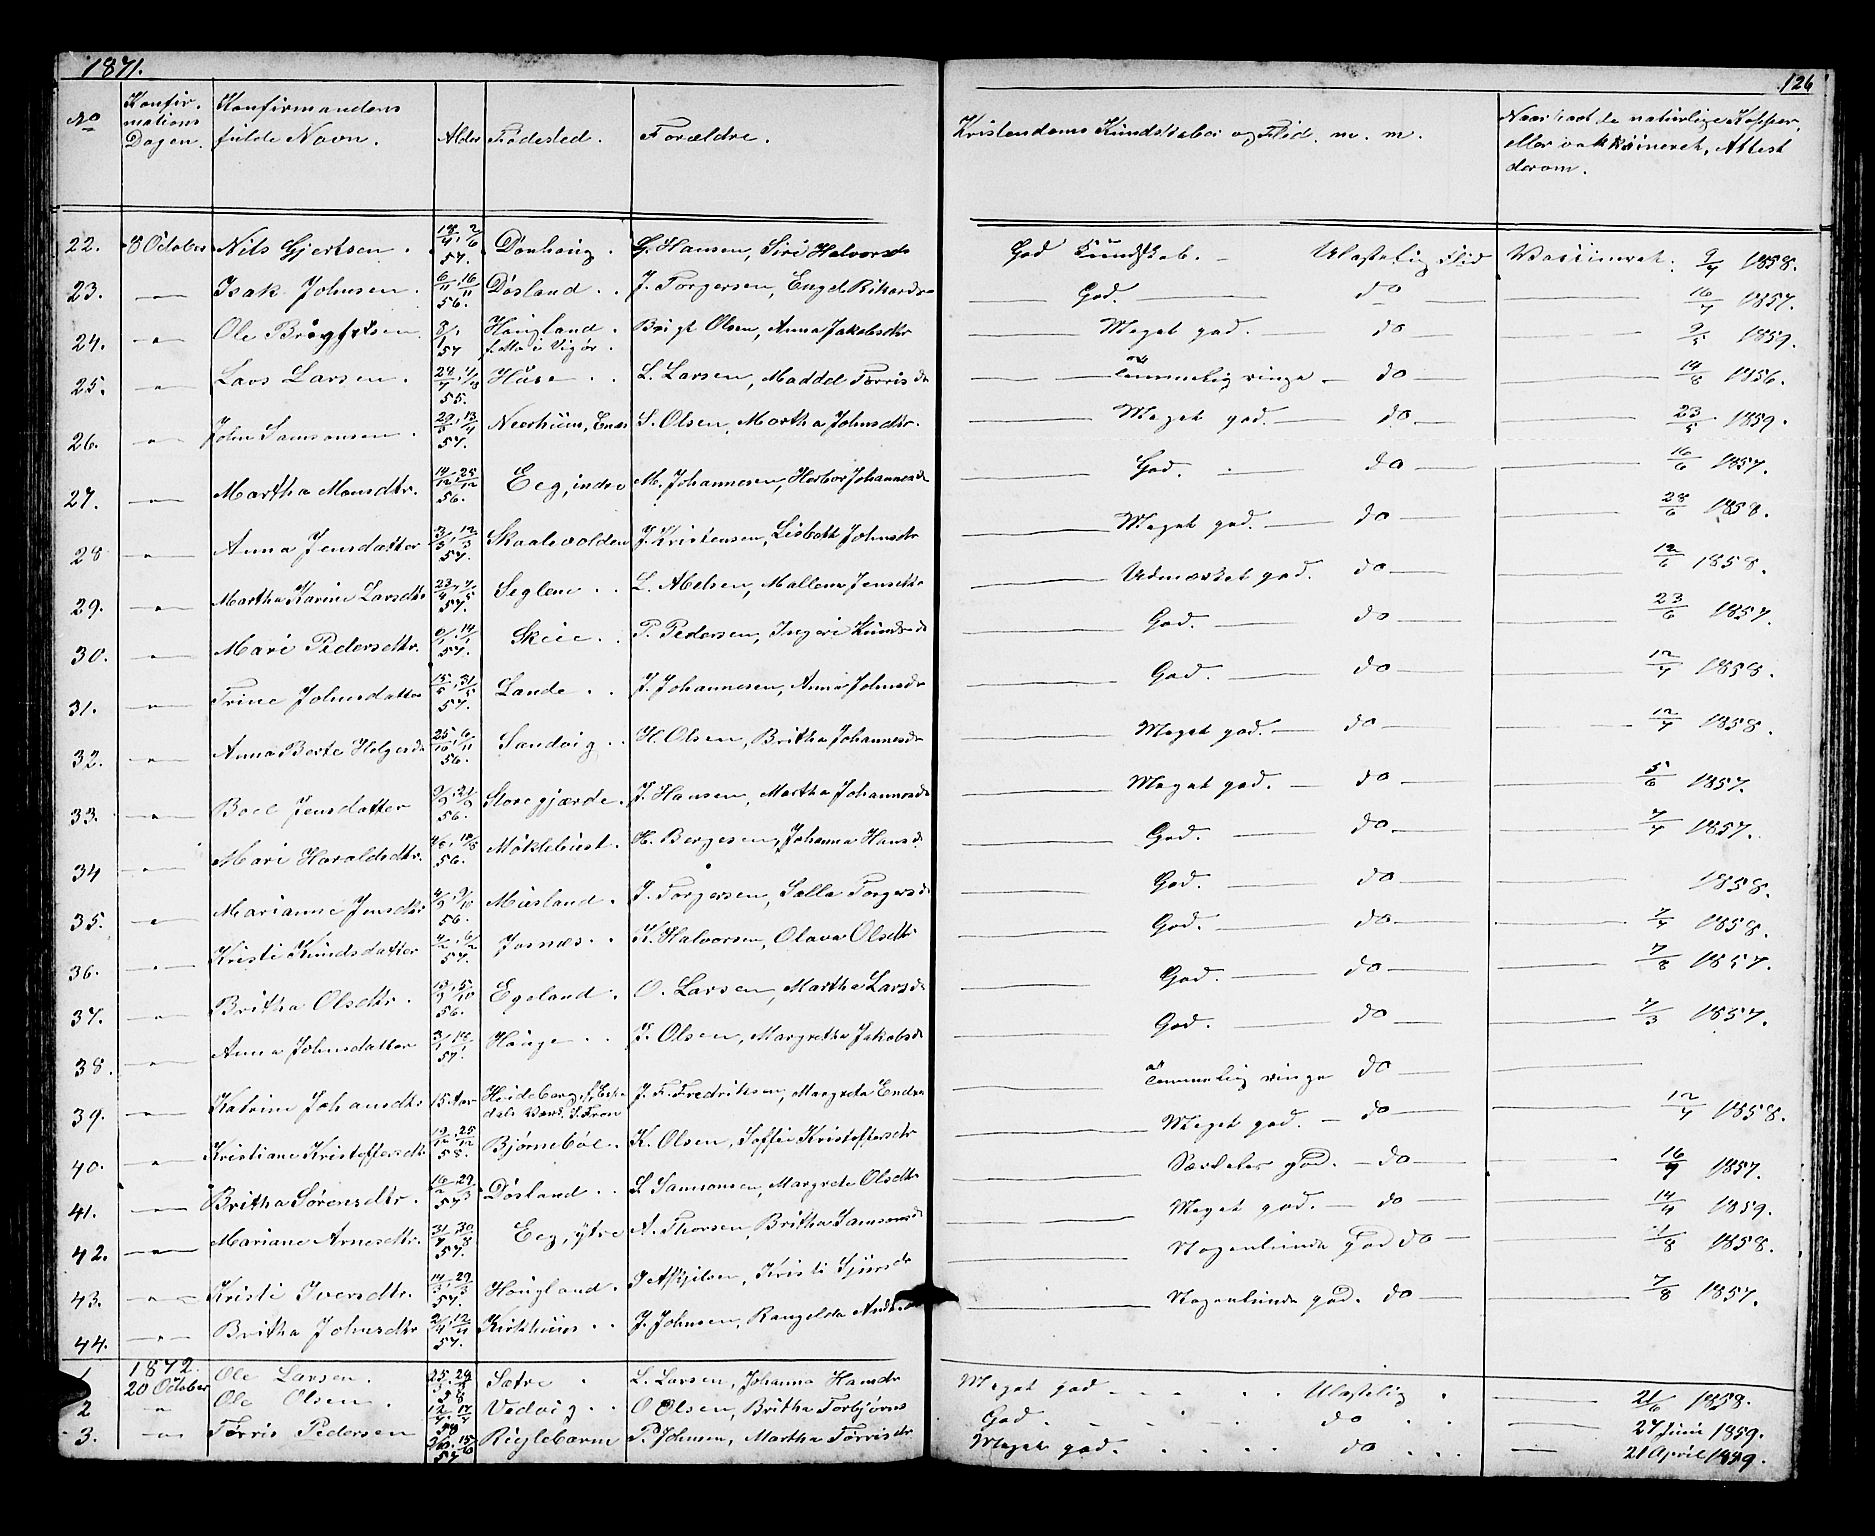 1871.
126
No
Konfirmations Dagen.
Konfirmandens fulde Navn.
Alder
Fødested.
Forældre.
Kristendoms Kundskaber og Flid. m. m.
Naar havt de naturlige Kopper, eller vakkineret, Attest derom.
22. 8 October Nils Gjertsen. 57. G. Hansen, Siri Halvorsd God Kundskab. Ulastelig Flid Vaccineret. 1858.
23. Isak Johnsen. 6/11 16/11 56. Døsland J. Torgersen, Engel Rikardsd God. do 16/7 1857.
24. Ole 8/1 57 Haugland. Olsen, Anna Jakobsdtr Meget god. do 9/5 1859.
25. Lars Larsen. 55. Huse L. Larsen, Maddel Tørrisd Temmelig ringe do 14/8 1856.
26. John Samsonsen. 57. S. Olsen, Martha Johnsdtr. Meget god. do 23/5 1859.
27. Martha Monsdtr. 14/12 25/12 56. Eeg, indre M. Johannesen, Herbor Johannesd God. do 16/6 1857.
28 Anna Jensdatter 3/3 12/3 57. Skaalevolden J. Kristensen, Lisbeth Johnsdtr Meget god. do 28/6 1858.
29. Martha Karine Larsdtr 57. Seglem L. Abelsen, Mallene Jensdtr Udmærket god. do 12/6 1858.
30. Mari Pedersdtr. 57. Skeie P. Pedersen, Ingeri Knudsd God. do 23/6 1857.
31. Trine Johnsdatter 15/5 31/5 57. Lande J. Johannesen, Anna Johnsd God. do 12/7 1858.
32. Anna Berte Helgesd 25/10 6/11 56. Sandvig H. Olsen, Britha Johannesd Meget god. do 12/7 1858.
33. Boel Jensdatter 9/9 21/9 56. Storegjærde. J. Hansen, Martha Johannesd Meget god. do 5/6 1857.
34 Mari Haraldsdtr. 56. Møklebust. H. Børgesen, Johanna Hansd God. do 7/7 1857.
35. Marianne Jensdtr 56. Musland. J. Torgersen, Salla Torgersd God. do 1858.
36. Kristi Knudsdatter 57. Josnæs K. Halvorsen, Olava Olsdtr God. do 7/7 1858.
37. Britha Olsdtr. 56. Egeland. O. Larsen, Martha Larsd God. do 7/8 1857.
38. Anna Johnsdatter 57. Hauge J. Olsen, Margretha Jakobsd God. do 7/3 1857.
39. Katrine Johansdtr 15 Aar J. F. Fredriksen, Margreta Endre Temmelig ringe do
40. Kristiane Kristoffersdtr 12/12 25/12 55. Bjørnebøl. K. Olsen, Soffie Kristoffersdtr Meget god. do 12/7 1858.
41. Britha Sørensdtr. 57 Døsland S. Samsonsen, Margrete Olsdtr Særdeles god. do 1857.
42. Mariane Arnesdtr. 31/7 30/8 57. Eeg, ytre A. Thorsen, Britha Samsonsd Meget god. do 14/4 1859.
43. Kristi Iversdtr. 14/3 29/3 57. Haugland. I Askjilsen, Kristi Sjursdtr Nogenlunde god do 1/8 1858.
44. Britha Johnsdtr 57. Kirkhuus J. Johnsen, Rangelda Nogenlunde god. do 7/8 1857.
1872.
1 20 October Ole Larsen. 58 Sætre L. Larsen, Johanna Hansdr Meget god Ulastelig 21/6 1858.
2 Ole Olsen. Vedvig O Olsen, Britha Torbjørns God. do 27 Juni 1859.
3. Tørris Pedersen P. Johnsen, Martha Tørrisdr Meget god. do 21 April 1859.